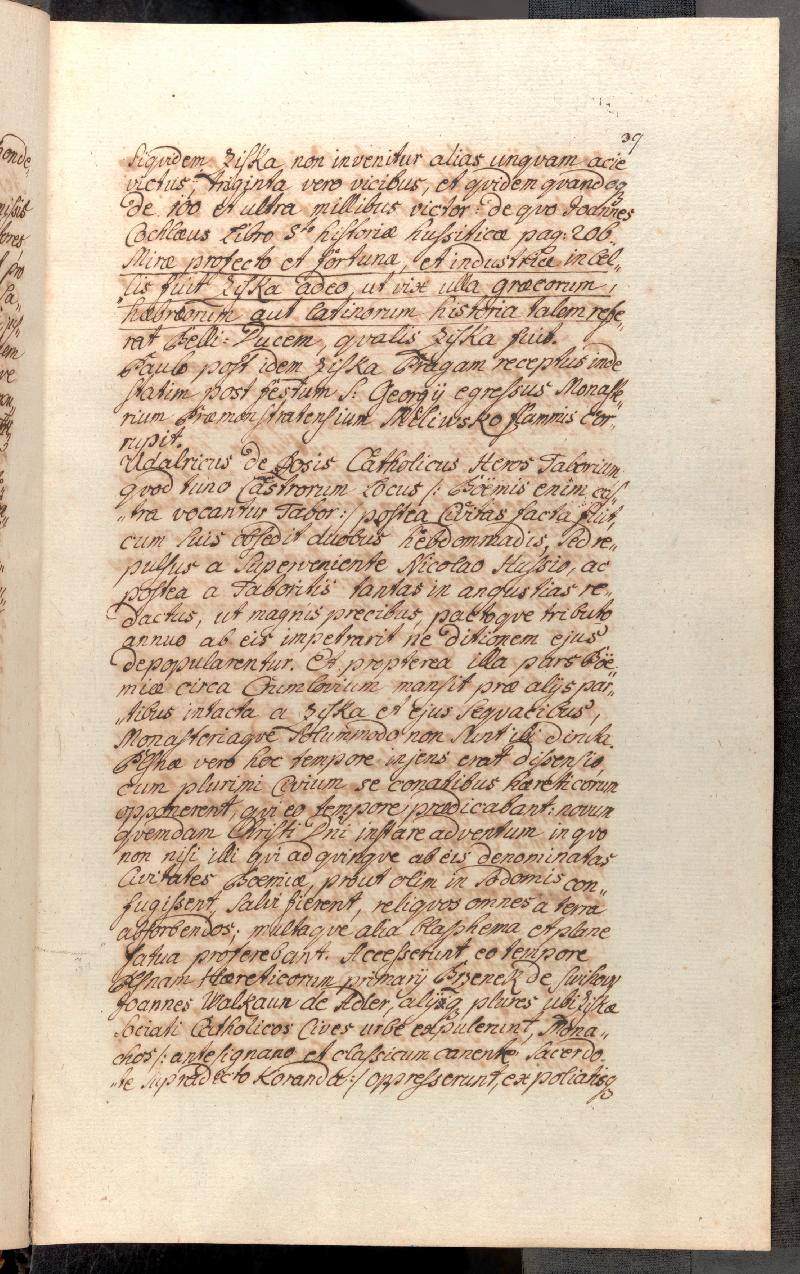 39
Siqvidem Ziska, non invenitur alias unqvam acie
victus, triginta vero vicibus, et qvidem qvandoq
de 100 et ultra millibus victor: de qvo Joannes
Cochlæus Libro 5to historiæ hussiticæ pag: 206.
Miræ profecto et fortunæ, et industriæ in bel„
„lis fuit Ziska adeo, ut vix ulla græcorum,
hæbreorum aut latinorum historia talem refe„
rat Belli: Ducem, qvalis Ziska fuit.
Paulo post idem Ziska Pragam receptus inde
statim post festum S: Georgij egressus Monaste„
rium Præmonstratensium Miliwsko flammis cor„
rupit.
Udalricus de Rosis Catholicus Heros Taborium
qvod tunc Castrorum Locus /: Böemis enim cas„
„tra vocantur Tabor :/ postea Civitas facta fuit,
cum suis obsedit duobus hebdommadis, sed re„
pulsus a superveniente Nicolao Hussio, ac
postea a Taboritis tantas in angustias re„
dactus, ut magnis precibus, pactoqve tributo
annuo ab eis impetrarit ne ditionem ejus
depopularentur. Et propterea illa pars Böe„
miæ circa Crumlovium mansit præ alijs par„
„tibus intacta a Ziska et ejus seqvacibus,
Monasteriaqve solummodo non sunt illi diruta.
Pilsnæ vero hoc tempore ingens erat dissensio
cum plurimi Civium se conatibus hæreticorum
opponerent, qvi eo tempore prædicabant: novum
qvemdam Christi Dni instare adventum in qvo
non nisi illi qvi ad qvinqve ab eis denominatas
Civitates Boemiæ, prout olim in Sodomis con„
fugissent, salvi fierent, reliqvos omnes a terra
absorbendos; multaqve alia blasphema et plane
fatua proferebant. Accesserunt eo tempore
Pilsnam Hæreticorum primarij Brzenek de Swihow
Joannes Walkaun de Adler, alijq plures ubi Ziskæ
sociati Catholicos Cives urbe expulerunt, Mona„
chos /: antesignano et classicum canente Sacerdo„
„te supradicto Koranda :/ oppresserunt, expoliatisq